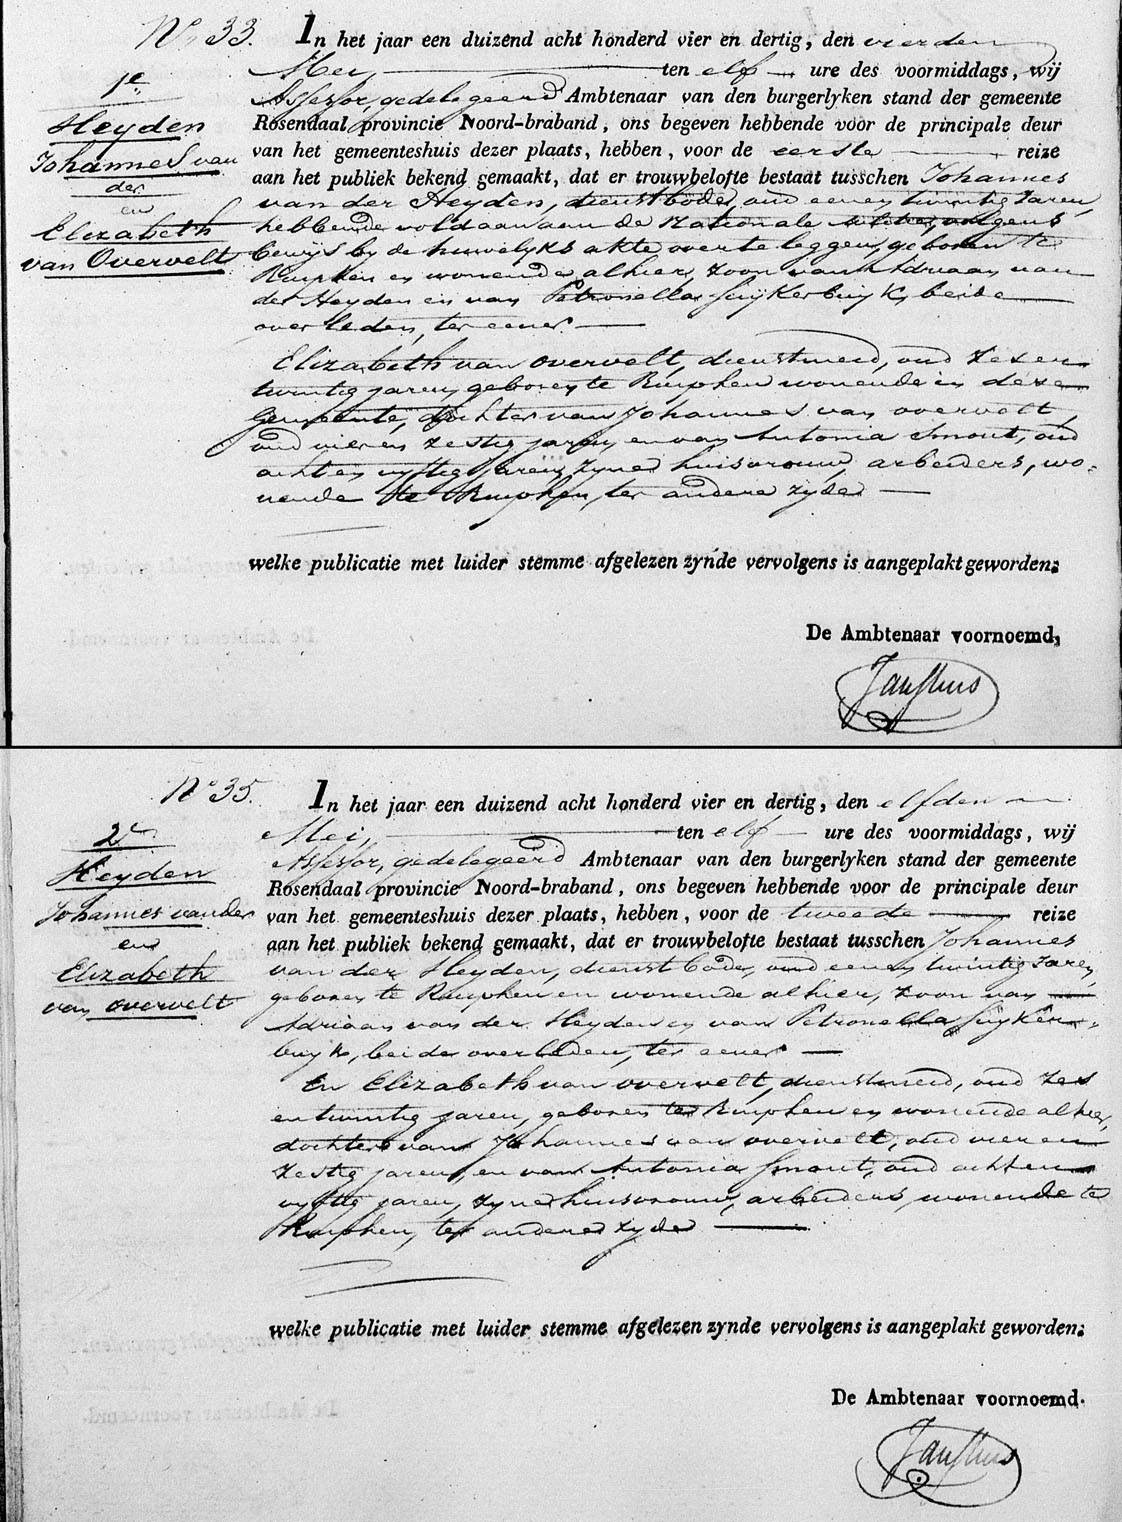 No 33.
1e
Heyden
Johannes van
der
en
Elizabeth
van Overvelt
In het jaar een duizend acht honderd vier en dertig, den vierden
Mei, ten elf ure des voormiddags, wij
Assessor, gedelegeerd Ambtenaar van den burgerlyken stand der gemeente
Rosendaal provincie Noord-braband, ons begeven hebbende voor de principale deur
van het gemeenteshuis dezer plaats, hebben, voor de eerste reize
aan het publiek bekend gemaakt, dat er trouwbelofte bestaat tusschen Johannes
van der Heyden, dienstbode, oud eenen twintig Jaren,
hebbende voldaan aan de Nationale volgens
bewijs by de huwelyks akte over te leggen, geboren te
Rucphen en wonende alhier, zoon van Adriaan van
der Heyden en van Petronella Suijkerbuijk, beide
overleden, ter eener
Elizabeth van Overvelt, dienstmeid, oud zes en
twintig jaren, geboren te Rucphen wonende in deze
Gemeente, dochter van Johannes van Overvelt,
oud vier en zestig jaren, en van Antonia Smout, oud
acht en vyftig jaren, zyne huisvrouw, arbeiders, wo-
nende te Rucphen, ter andere zyde
welke publicatie met luider stemme afgelezen zynde vervolgens is aangeplakt geworden;
De Ambtenaar voornoemd,
No 35.
2e
Heyden
Johannes van der
en
Elizabeth
van Overvelt
In het jaar een duizend acht honderd vier en dertig, den elfden
Mei, ten elf ure des voormiddags, wij
Assessor, gedelegeerd Ambtenaar van den burgerlyken stand der gemeente
Rosendaal provincie Noord-braband, ons begeven hebbende voor de principale deur
van het gemeenteshuis dezer plaats, hebben, voor de tweede reize
aan het publiek bekend gemaakt, dat er trouwbelofte bestaat tusschen Johannes
van der Heyden, dienstbode, oud eenen twintig Jaren,
geboren te Rucphen en wonende alhier, zoon van
Adriaan van der Heyden en van Petronella Suijker-
buijk, beide overleden, ter eener
En Elizabeth van Overvelt, dienstmeid, oud zes
en twintig jaren, geboren te Rucphen en wonende alhier,
dochter van Johannes van Overvelt, oud vier en
zestig jaren, en van Antonia Smout, oud acht en
vyftig jaren, zyne huisvrouw, arbeiders, wonende te
Rucphen, ter andere zyde
welke publicatie met luider stemme afgelezen zynde vervolgens is aangeplakt geworden;
De Ambtenaar voornoemd.